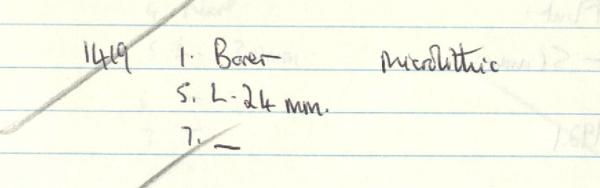 1419 1. Borer microlithic
5. L. 24 mm.
7. —